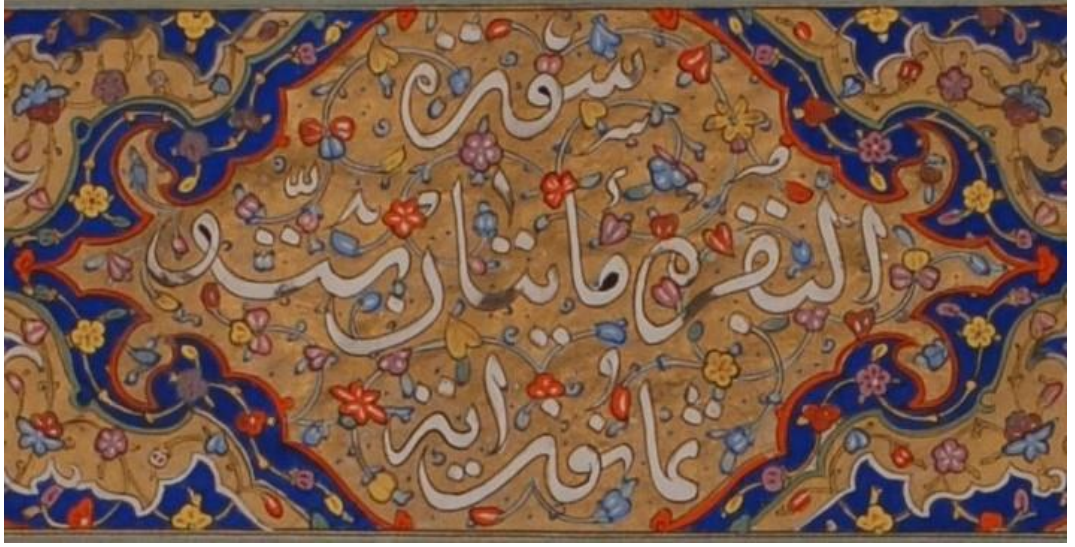 سورة
البقرة مأيتان وستّ و
ثمانون اية